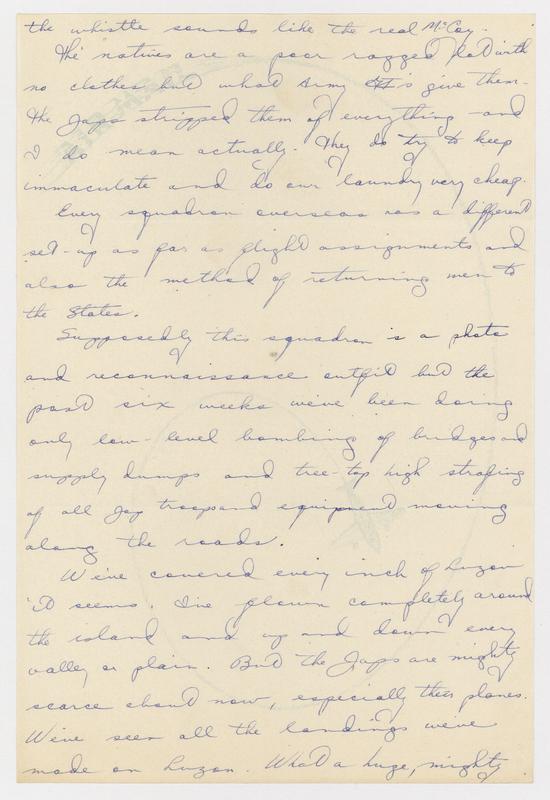 the whistle sounds like the real McCoy.
The natives are a poor ragged lot with
no clothes but what Army give them.
the Japs stripped them of everything and
I do mean actually. They do try to keep
immaculate and do our laundry very cheap.
Every squadron overseas has a different
set-up as far as flight assignments and
also the method of returning men to
the States.
Supposedly this squadron is a photo
and reconnaissance outfit but the
past six weeks we've been doing
only low-level bombing of bridges and
supply dumps and tree-top high strafing
of all Jap troops and equipment moving
along the roads.
We've covered every inch of Luzon
it seems. I've flown completely around
the island and up and down every
valley or plain. But the Japs are mighty
scarce about now, especially their planes.
We've seen all the landings we've
made on Luzon. What a huge, mighty